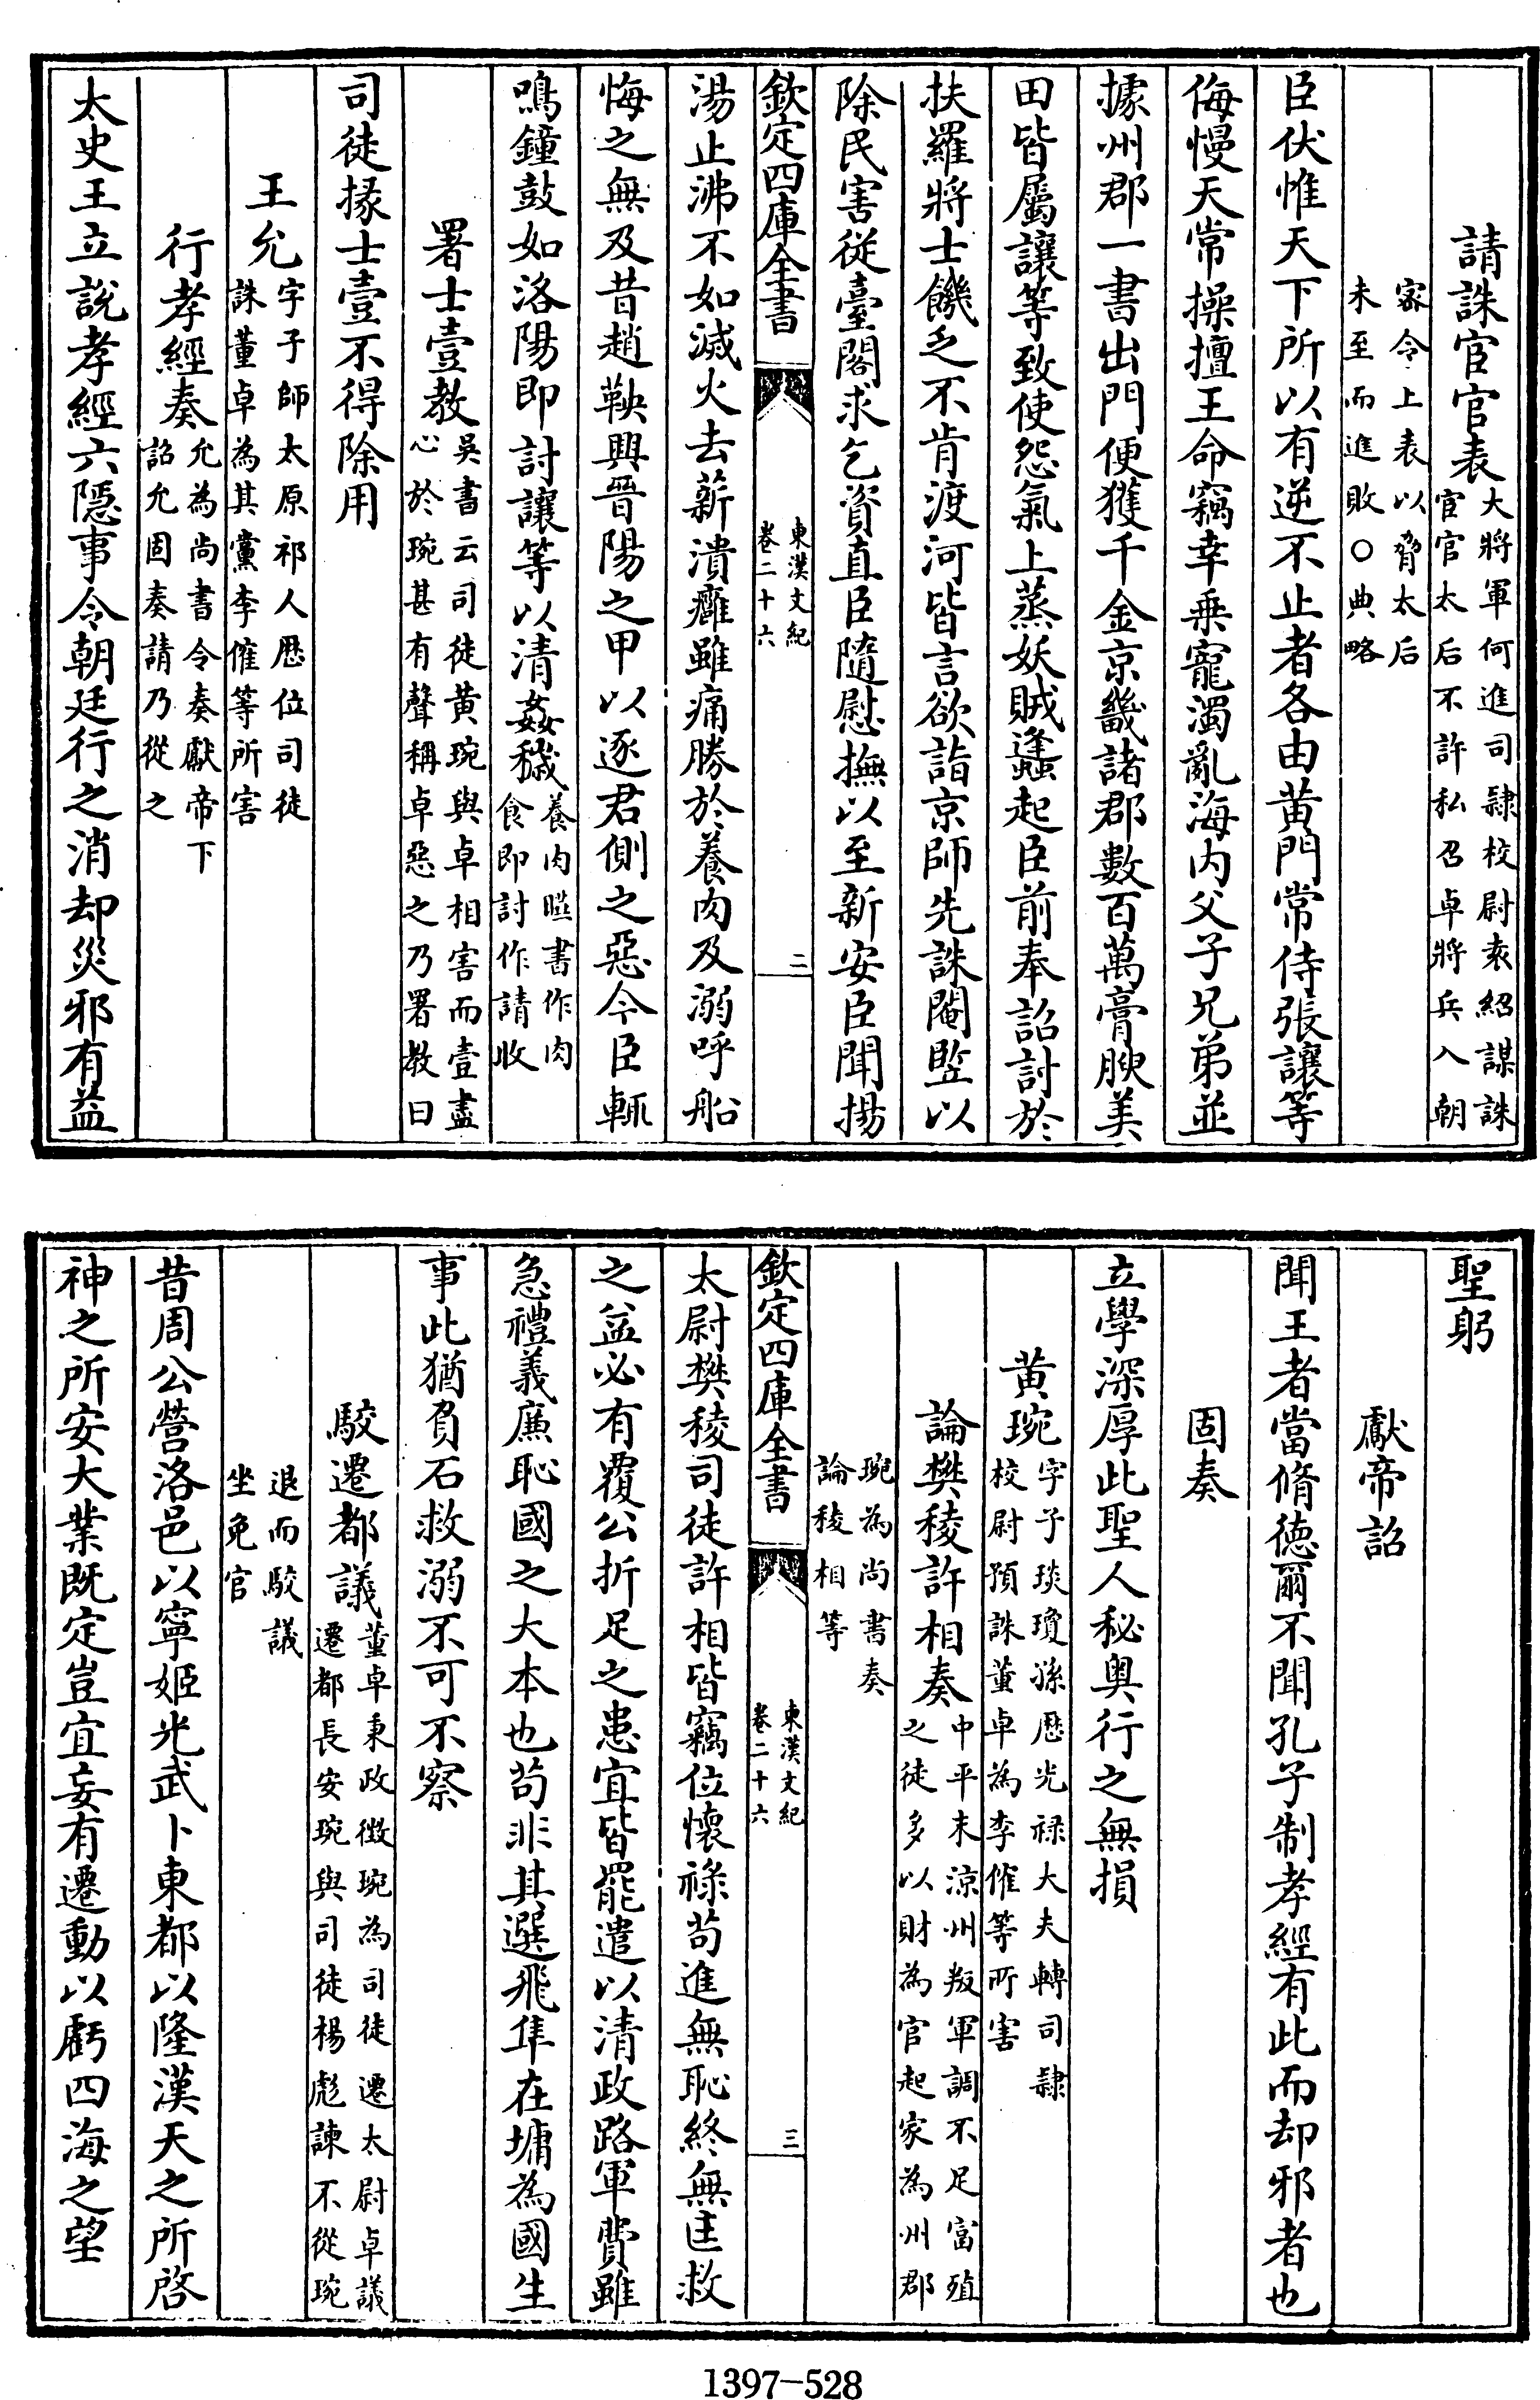 請誅宦官表大將軍何進司隸校尉袁紹謀誅宦官太后不許私召卓將兵入朝
密令上表以脅太后未至而進敗○典略
臣伏惟天下所以有逆不止者各由黄門常侍張讓等
侮慢天常操擅王命竊幸乘寵濁亂海内父子兄弟並
據州郡一書出門便獲千金京畿諸郡數百萬膏腴美
田皆屬讓等致使怨氣上蒸妖賊蠭起臣前奉詔討於
扶羅將士饑乏不肯渡河皆言欲詣京師先誅閹竪以
除民害從臺閣求乞資直臣隨慰撫以至新安臣聞揚
欽定四庫全書
東漢文紀
卷二十六
二
湯止沸不如滅火去薪潰癰雖痛勝於養肉及溺呼船
悔之無及昔趙鞅興晉陽之甲以逐君側之惡今臣輒
鳴鐘鼓如洛陽即討讓等以清姦穢養肉嘊書作肉食即討作請收
署士壹教吳書云司徒黄琬與卓相害而壹盡心於琬甚有聲稱卓惡之乃署教曰
司徒掾士壹不得除用
王允字子師太原祁人厯位司徒誅董卓為其黨李傕等所害
行孝經奏允為尚書令奏獻帝下詔允固奏請乃從之
太史王立說孝經六隱事令朝廷行之消却災邪有益
聖躬
獻帝詔
聞王者當脩德爾不聞孔子制孝經有此而却邪者也
固奏
立學深厚此聖人秘奥行之無損
黄琬字子琰瓊孫厯光禄大夫轉司隸校尉預誅董卓為李傕等所害
論樊稜許相奏中平末涼州叛軍調不足富殖之徒多以財為官起家為州郡
琬為尚書奏論稜相等
欽定四庫全書
東漢文紀
卷二十六
三
太尉樊稜司徒許相皆竊位懷祿苟進無恥終無匡救
之益必有覆公折足之患宜皆罷遣以清政路軍費雖
急禮義廉恥國之大本也苟非其選飛隼在墉為國生
事此猶負石救溺不可不察
駮遷都議董卓秉政徵琬為司徒遷太尉卓議遷都長安琬與司徒楊彪諫不從琬
退而駮議坐免官
昔周公營洛邑以寧姬光武卜東都以隆漢天之所啓
神之所安大業既定豈宜妄有遷動以虧四海之望
1397-528